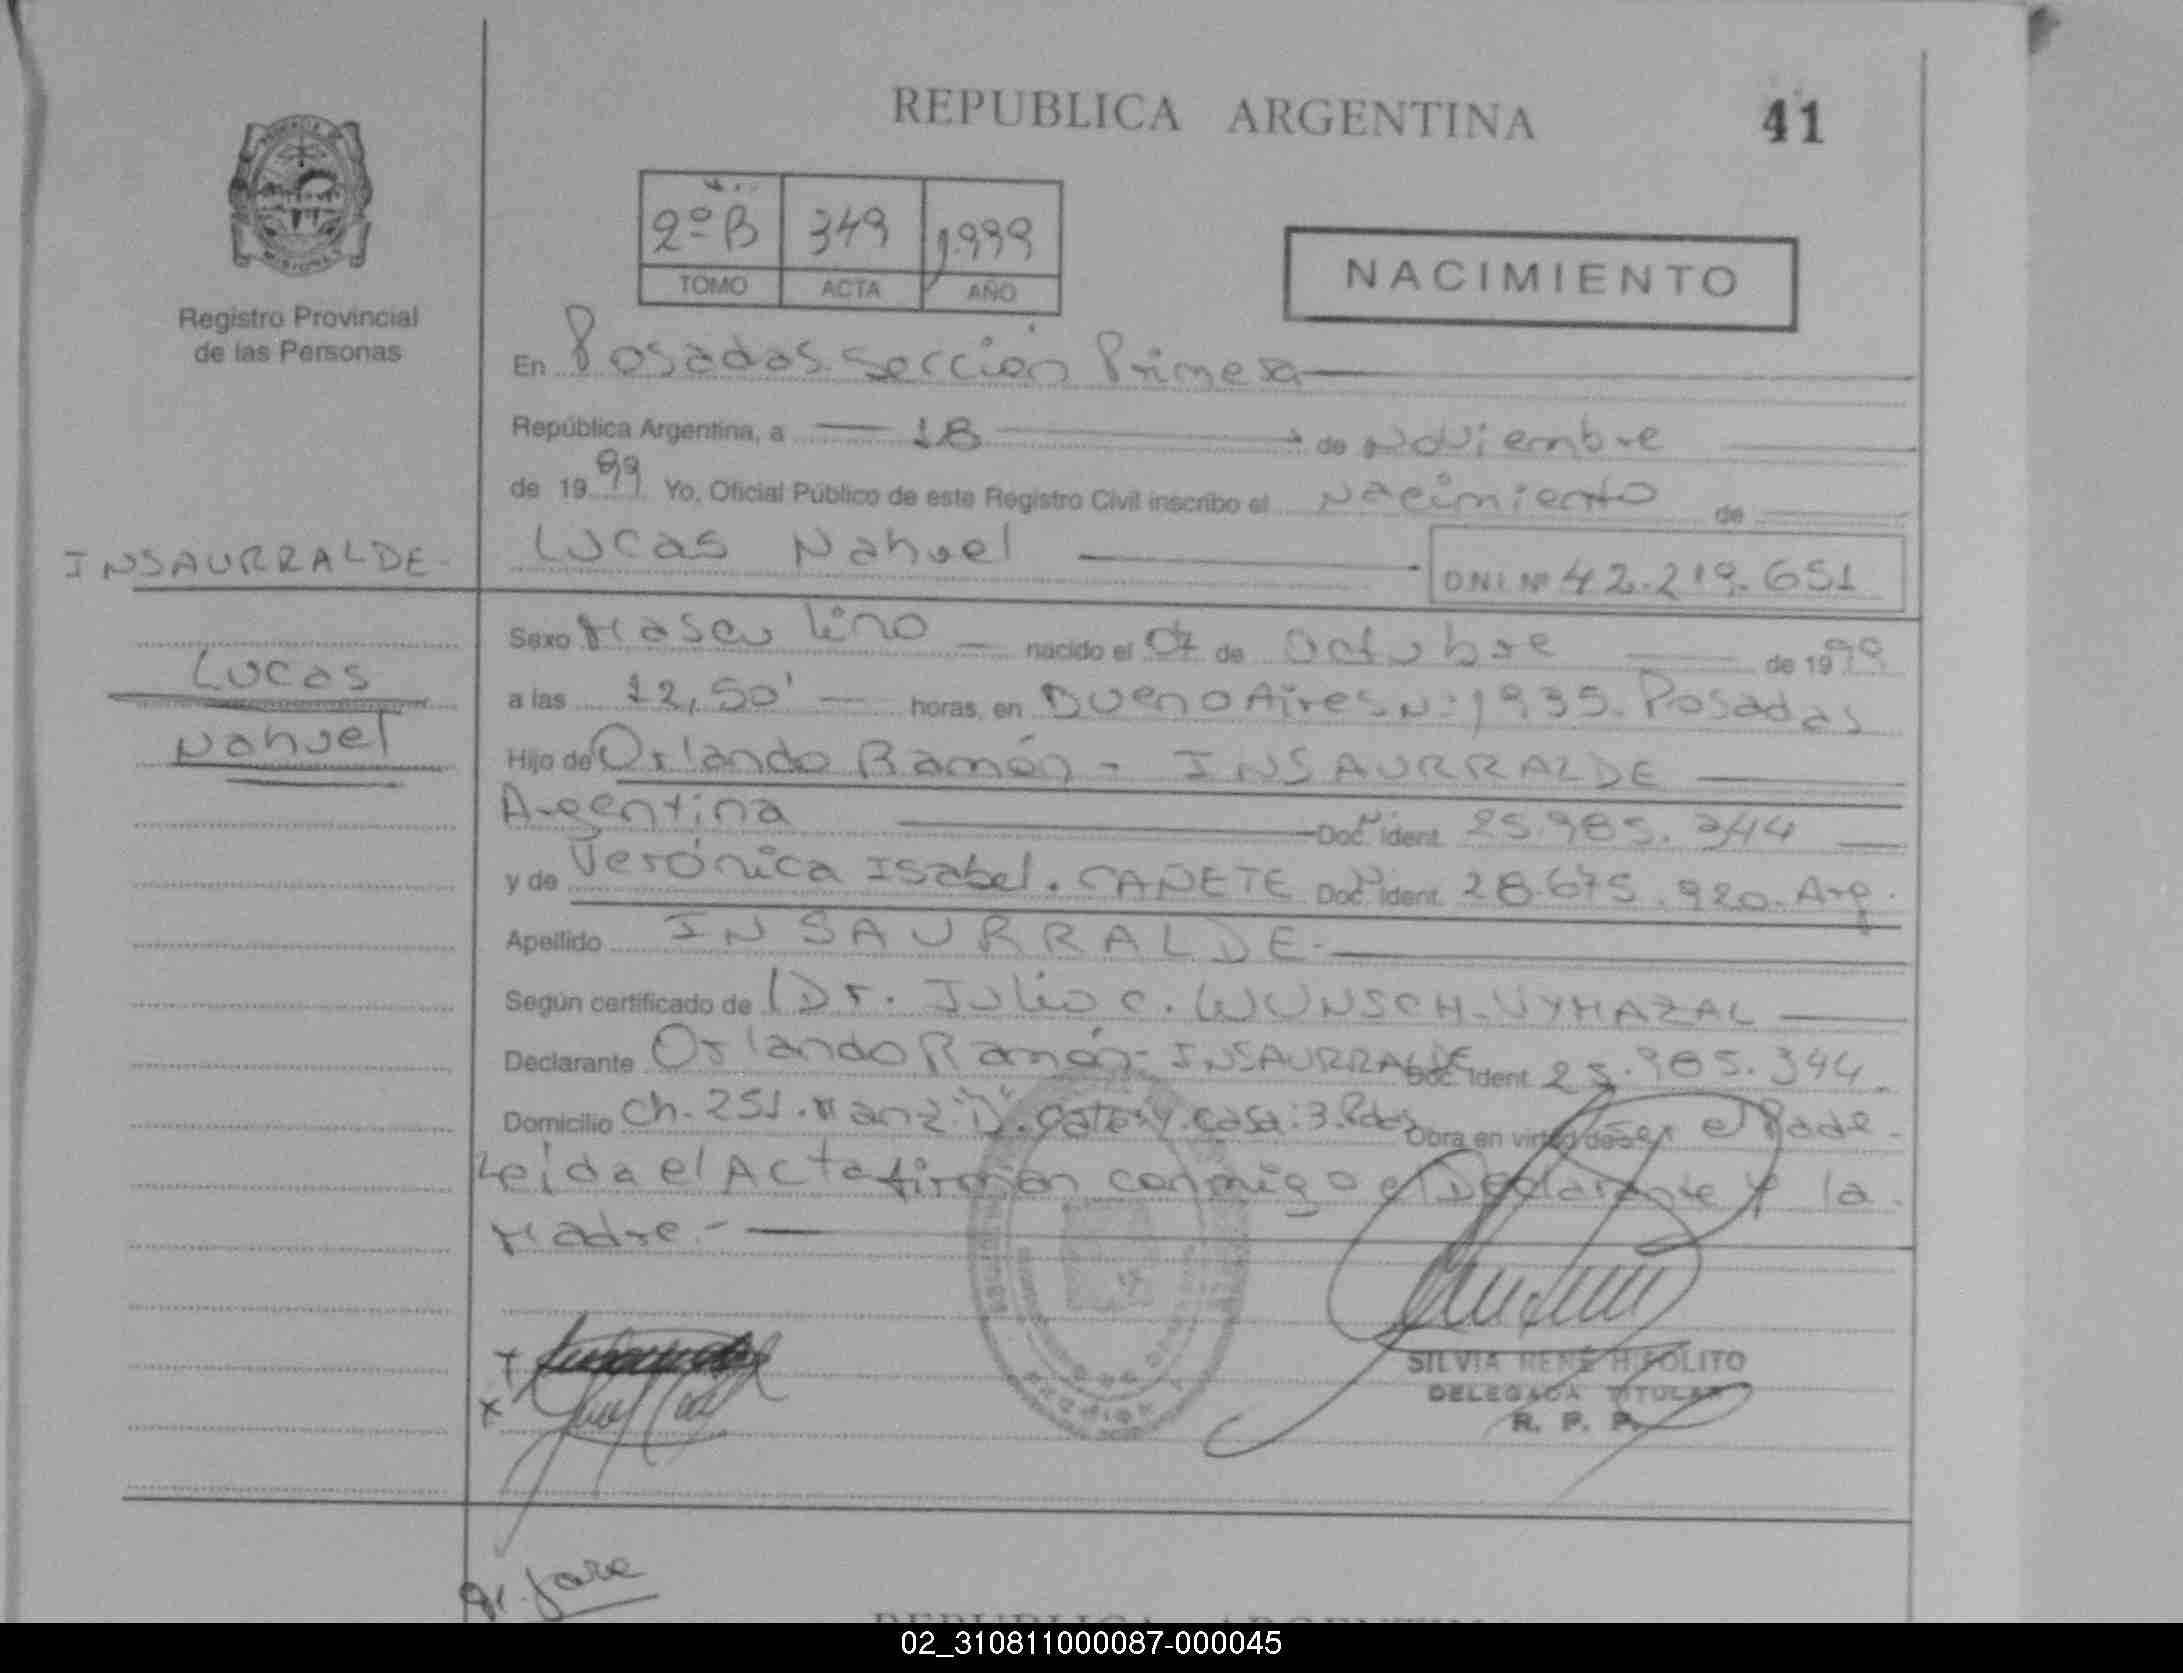 REPUBLICA ARGENTINA
41
PROVINCIA DE
MISIONES
Registro Provincial
de las Personas
2º B 349 1.999
TOMO ACTA AÑO
NACIMIENTO
En Posadas. Sección Primera
República Argentina, a 18 de Noviembre
de 1999 Yo, Oficial Público de este Registro Civil inscribo el Nacimiento de
INSAURRALDE.
Lucas Nahuel
D.N.I. Nº 42.219.651
Lucas
Nahuel
Sexo Masculino nacido el 07 de Octubre de 1999
a las 12,50' horas, en Bueno Aires Nº: 1935. Posadas
Hijo de Orlando Ramón - INSAURRALDE
Argentina Doc. Ident. 25.985.344
y de Verónica Isabel. CAÑETE Doc. Ident. 28.675.920. Arg.
Apellido INSAURRALDE.
Según certificado de Dr. Julio C. WUNSCH-VYHAZAL
Declarante Orlando Ramón - INSAURRALDE Doc. Ident. 25.985.344.
Domicilio Ch. 251. Manz: "D". casa: 3. Pdas Obra en virtud de ser el Padre.
Leída el Acta firman conmigo el Declarante y la
Madre.-
SILVIA RENÉ HIPOLITO
DELEGADA TITULAR
R. P. P.
REPUBLICA ARGENTINA
02_310811000087-000045